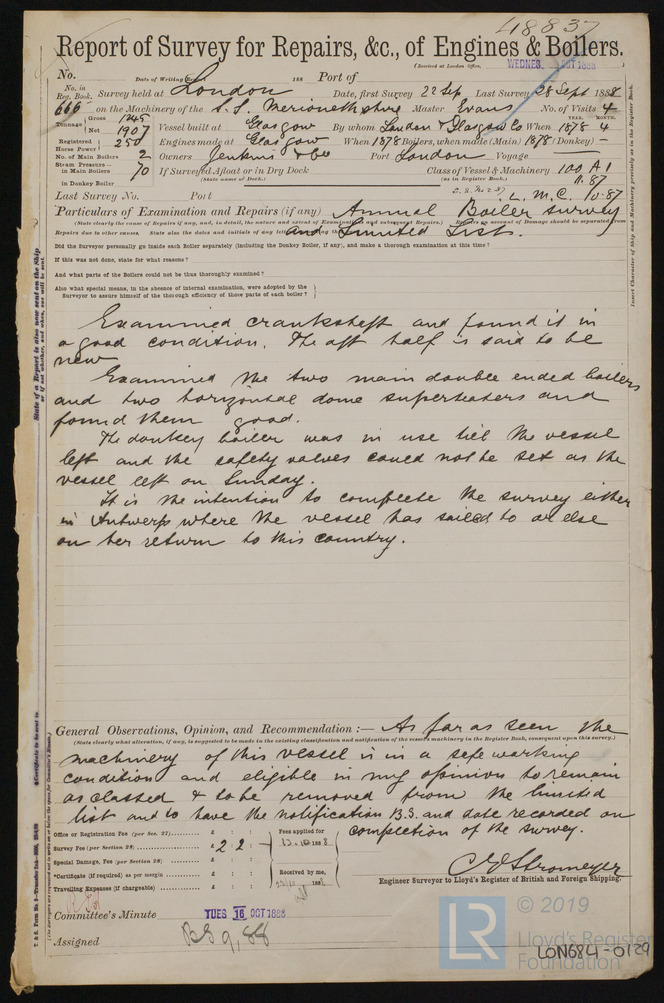 48837
Report of Survey for Repairs, &c., of Engines & Boilers.
(Received at London Office, WEDNES. OCT 1888
No. Date of Writing Report 188 Port of
No. in Reg. Book. Survey held at London Date, first Survey 22 Sep Last Survey 28 Sept 1888
666 on the Machinery of the S.S. Merionethshire Master Evans No. of Visits 4
Tonnage Gross 1245 Net 1907 Vessel built at Glasgow By whom London & Glasgow Co When 1878 4
YEAR. MONTH.
Registered Horse Power 250 Engines made at Glasgow When 1878 Boilers, when made (Main) 1878 (Donkey) —
No. of Main Boilers 2 Owners Jenkins & Co Port London Voyage
Steam Pressure in Main Boilers 70 If Surveyed Afloat or in Dry Dock Class of Vessel & Machinery 100 A1
(State name of Dock.) (as in Register Book.) 11.87
in Donkey Boiler
L.M.C. 10.87
Last Survey No. Port
Particulars of Examination and Repairs (if any) Annual Boiler survey
(State clearly the cause of Repairs if any, and, in detail, the nature and extent of Examinations and subsequent Repairs.) Repairs on account of Damage should be separated from
Repairs due to other causes. State also the dates and initials of any letters and Limited List.
Did the Surveyor personally go inside each Boiler separately (including the Donkey Boiler, if any), and make a thorough examination at this time?
If this was not done, state for what reasons?
And what parts of the Boilers could not be thus thoroughly examined?
Also what special means, in the absence of internal examination, were adopted by the
Surveyor to assure himself of the thorough efficiency of those parts of each boiler?
Examined crankshaft and found it in
a good condition. The aft half is said to be
new
Examined the two main double ended boilers
and two horizontal dome superheaters and
found them good.
The donkey boiler was in use till the vessel
left and the safety valves could not be set as the
vessel left on Sunday.
It is the intention to complete the survey either
in Antwerp where the vessel has sailed to or else
on her return to this country.
General Observations, Opinion, and Recommendation :— As far as seen the
(State clearly what alteration, if any, is suggested to be made in the existing classification and notification of the vessel's machinery in the Register Book, consequent upon this survey.)
machinery of this vessel is in a safe working
condition and eligible in my opinion to remain
as classed & to be removed from the limited
list and to have the notification B.S. and date recorded on
completion of the survey.
Office or Registration Fee (per Sec. 27) £ : :
Survey Fee (per Section 28) £ 2 2 —
Special Damage, Fee (per Section 28) £ : :
Certificate (if required) as per margin £ : :
Travelling Expenses (if chargeable) £ : :
Fees applied for
13.10.1888
Received by me,
188
C E Stromeyer
Engineer Surveyor to Lloyd's Register of British and Foreign Shipping.
Committee's Minute TUES 16 OCT 1888
Assigned BS 9,88
LR © 2019
Lloyd's Register
Foundation
LON684-0129
Insert Character of Ship and Machinery precisely as in the Register Book.
State if a Report is also now sent on the Ship
or if not whether, and when, one will be sent.